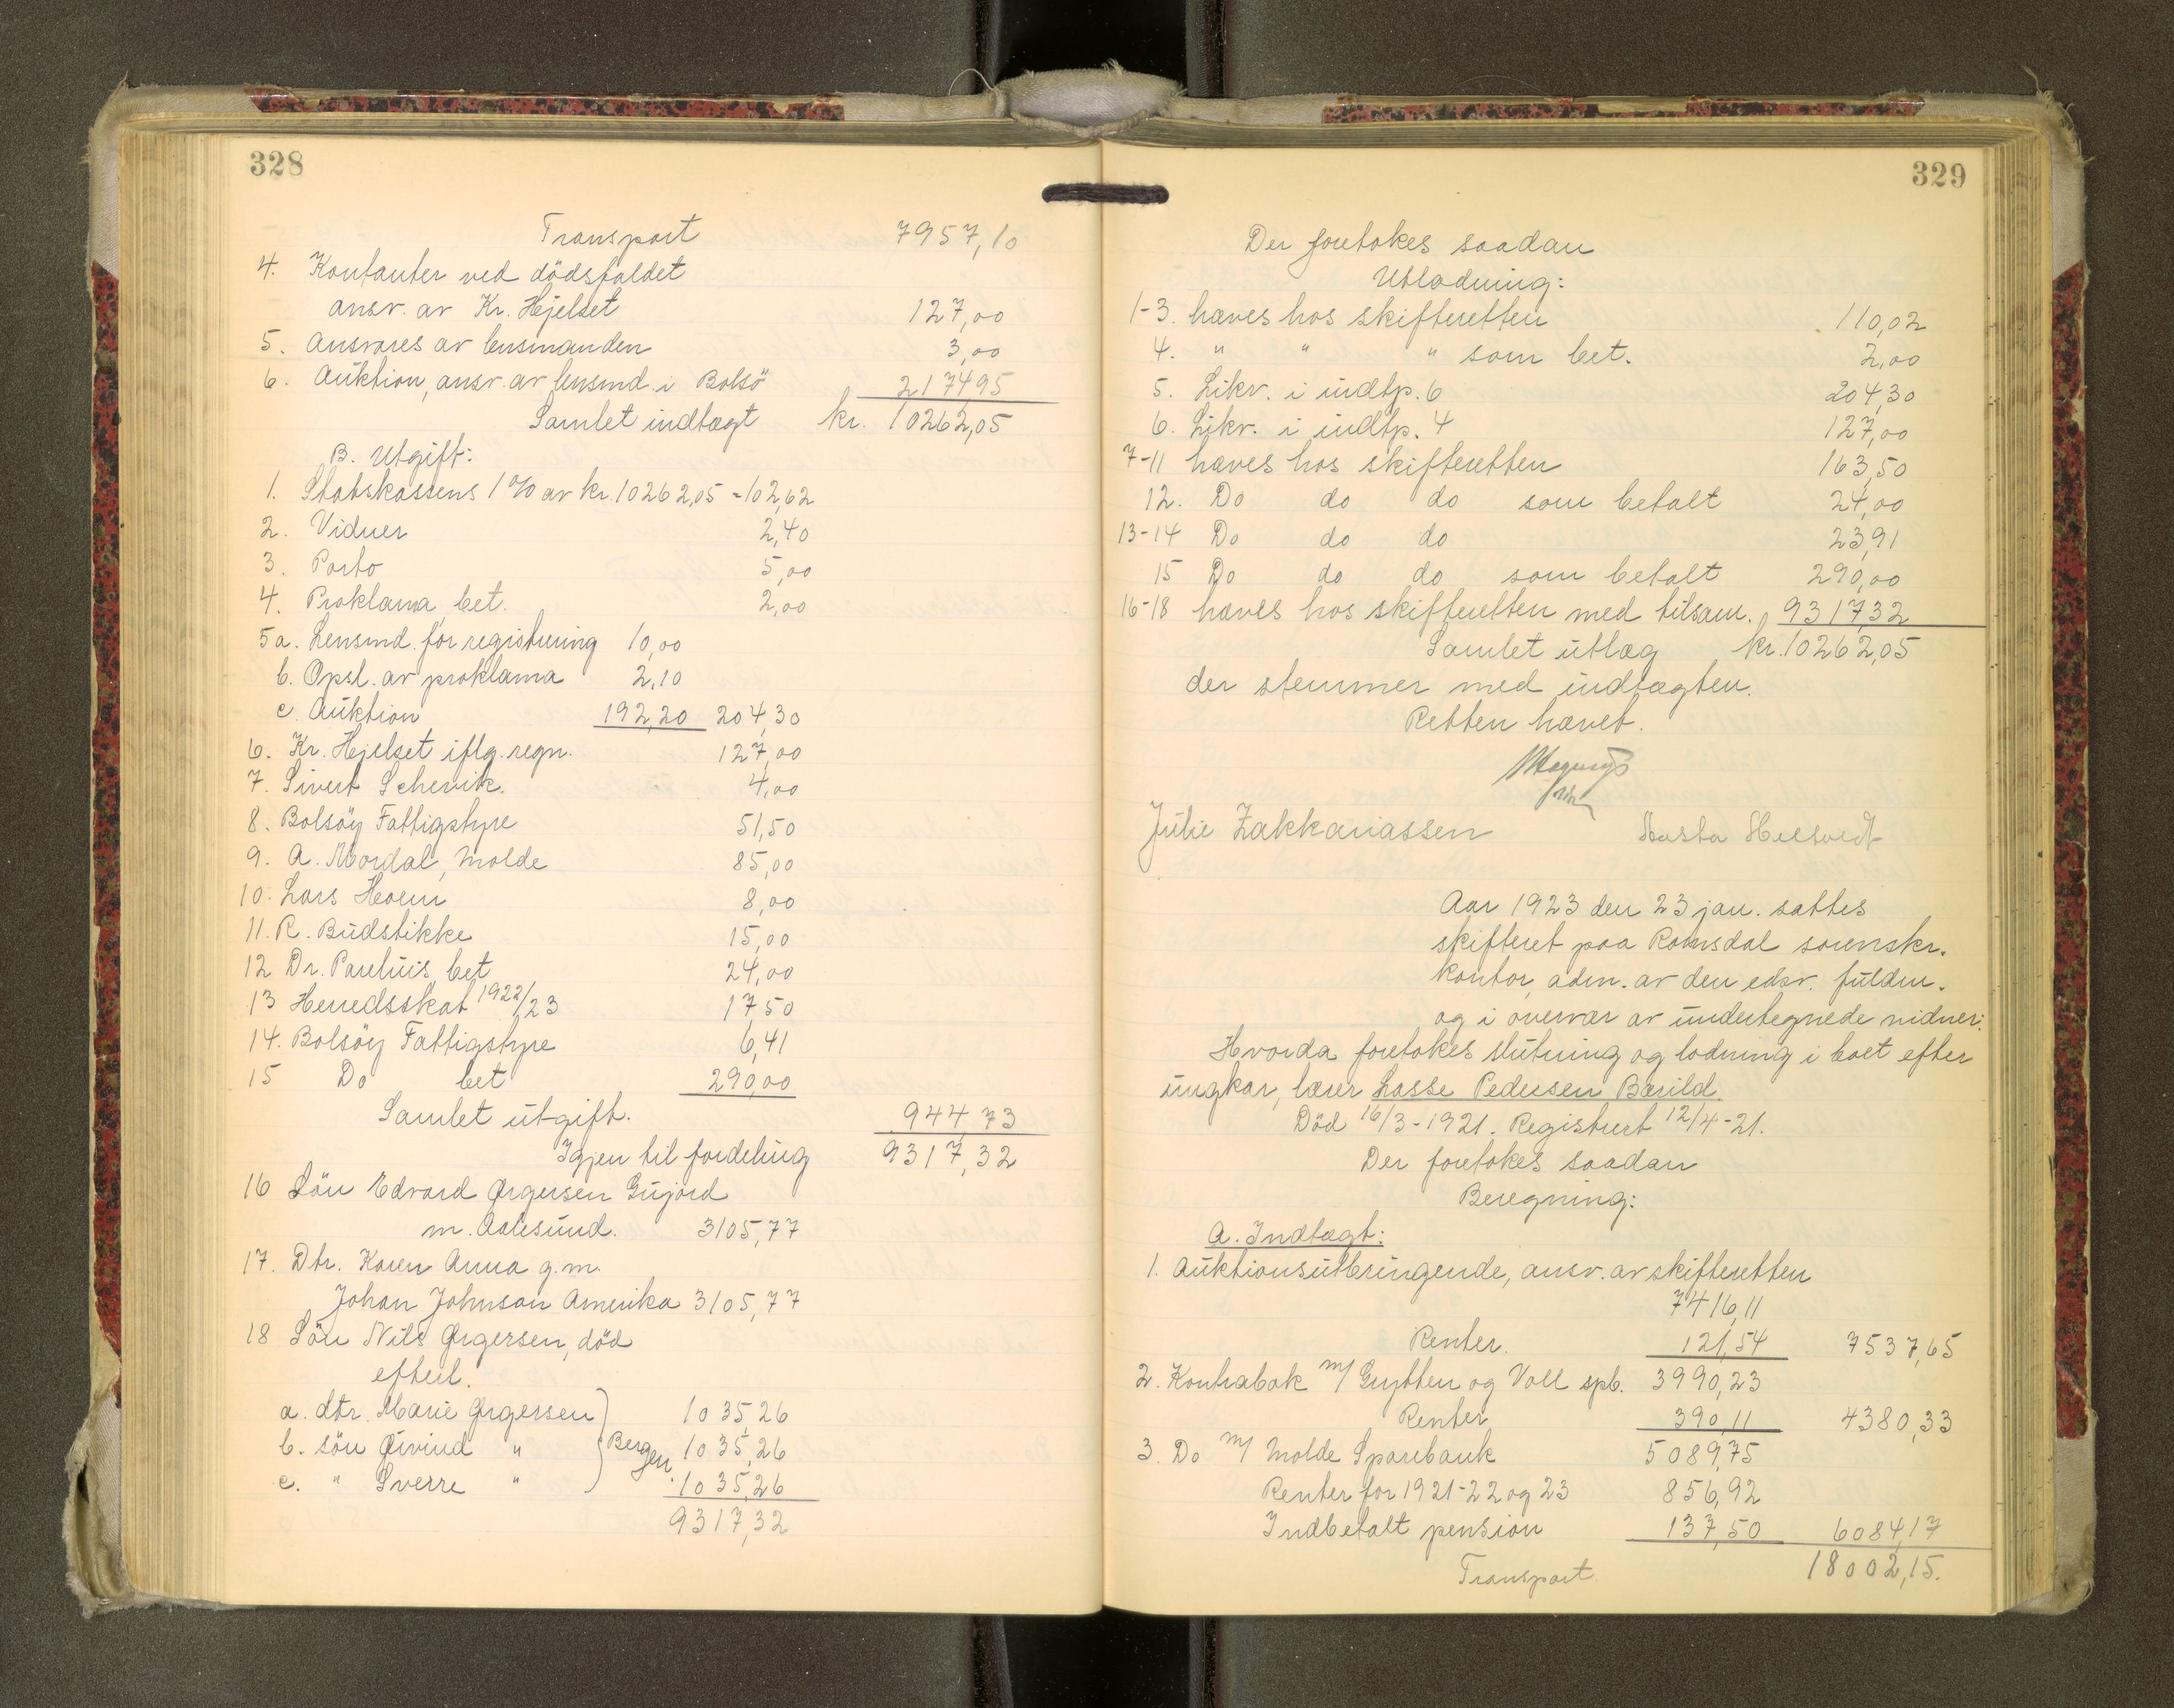 328
Transport 7957,10
4. Kontanter ved dödsfaldet
ansv. av Kr. Hjelset 127,00
5. Ansvares av lensmanden 3,00
6. Auktion, ansv. av lensmd. i Bolsö 2174,95
Samlet indtægt kr. 10262,05
B. Utgift:
1. Statskassens 1% av kr. 10262,05 = 102,62
2. Vidner 2,40
3. Porto 5,00
4. Proklama, bet. 2,00
5a. Lensmd. for registrering 10,00
b. Opsl. av proklama 2,10
c. Auktion 192,20 204,30
6. Kr. Hjelset iflg. regn. 127,00
7. Sivert Schevik. 4,00
8. Bolsöy Fattigstyre 51,50
9. A. Mordal, Molde 85,00
10. Lars Hoem 8,00
11. R. Budstikke 15,00
12 Dr. Parelius, bet 24,00
13 Herredsskat 1922/23 17,50
14. Bolsöy Fattigstyre 6,41
15 Do bet 290,00
Samlet utgift. 944,73
Igjen til fordeling 9317,32
16 Sön Edvard Ørgersen Gujord
m. Aalesund. 3105,77
17. Dtr. Karen Anna g.m.
Johan Johnson Amerika 3105,77
18 Sön Nils Ørgersen, död
efterl.
a. dtr. Marie Ørgersen 1035,26
b. sön Øivind " Bergen. 1035,26
c. " Sverre " 1035,26
9317,32
329
Der foretokes saadan
Utlodning:
1-3. hæves hos skifteretten 110,02
4. " " " som bet. 2,00
5. Likv. i indtp. 6 204,30
6. Likv. i indtp. 4 127,00
7-11 hæves hos skifteretten 163,50
12. Do do do som betalt 24,00
13-14 Do do do 23,91
15 Do do do som betalt 290,00
16-18 hæves hos skifteretten med tilsam. 9317,32
Samlet utlæg kr. 10262,05
der stemmer med indtægten.
Retten hævet.
Julie Zakkariassen
Aar 1923 den 23 jan. sattes
skifteret paa Romsdal sorenskr.
kontor, adm. av den edsv. fuldm.
og i overvær av undertegnede vidner:
Hvorda foretokes slutning og lodning i boet efter
ungkar, lærer Lasse Pedersen Bærild.
Död 16/3-1921. Registrert 12/4-21.
Der foretokes saadan
Beregning:
A. Indtægt:
1. Auktionsutbringende, ansv. av skifteretten
7416,11
Renter. 121,54 7537,65
2. Kontrabok m/ Grytten og Voll spb. 3990,23
Renter 390,11 4380,33
3. Do m/ Molde Sparebank 5089,75
Renter for 1921-22 og 23 856,92
Indbetalt pension 137,50 6084,17
Transport 18002,15.